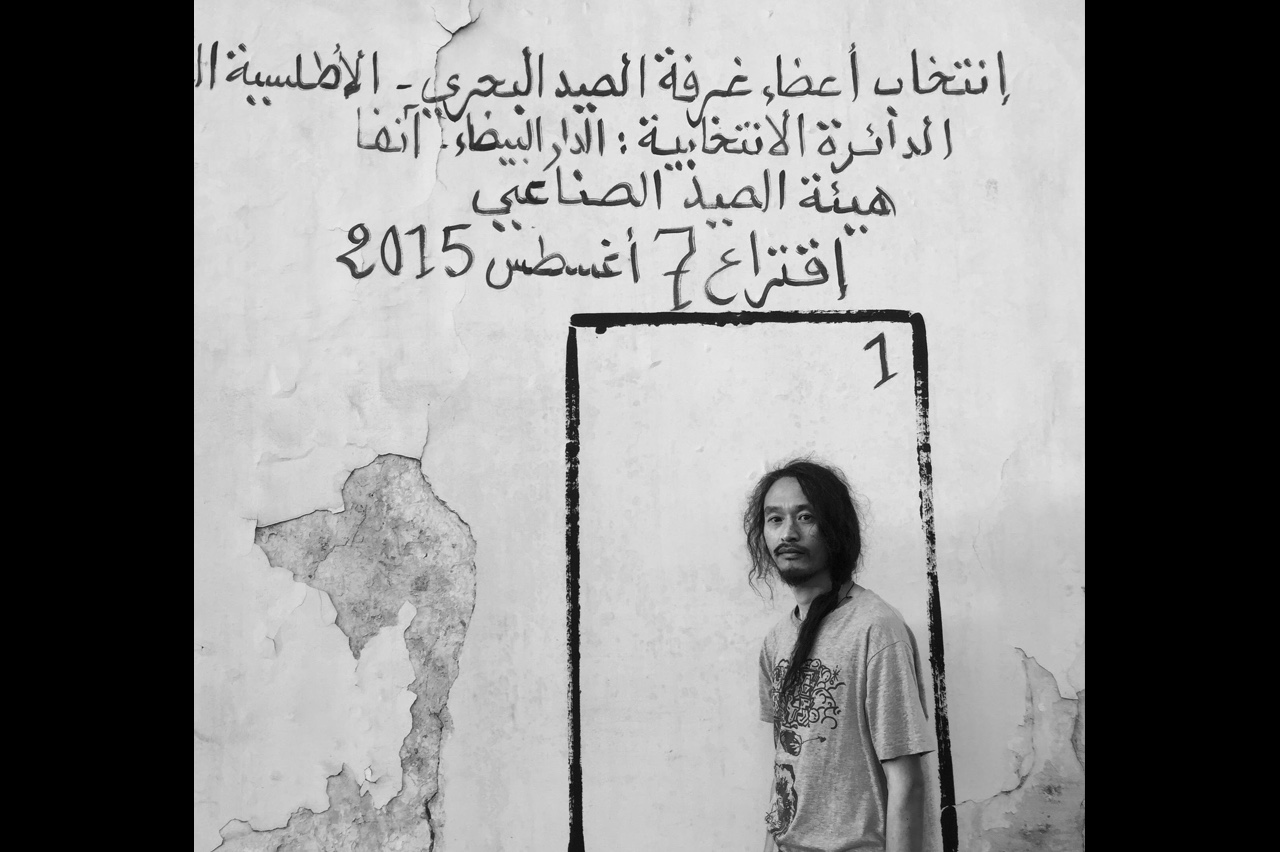 إنتخاب أعضاء غرفة الصيد البحري - الأطلسية
الدائرة الانتخابية : الدار البيضاء - آنفا
هيئة الصيد الصناعي
إقتراع 7 أغسطس 2015
1